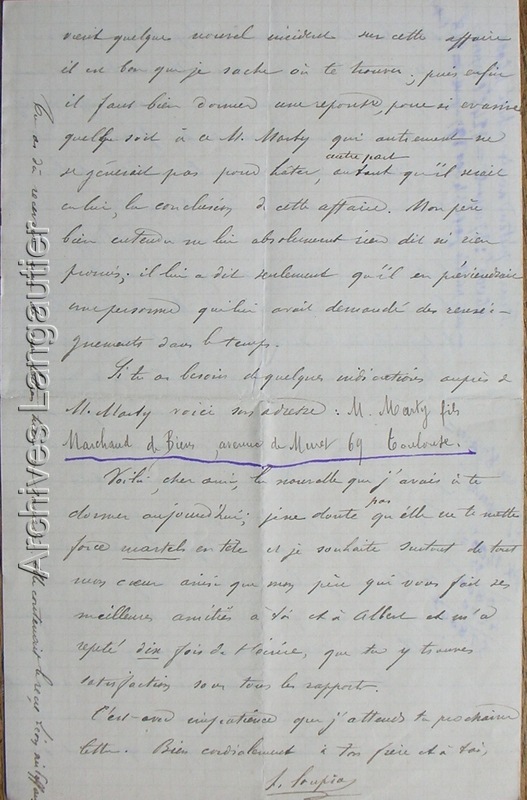 vient quelque nouvel incident sur cette affaire
il est bon que je sache où te trouver; puis enfin
il faut bien donner une réponse, pour si évasive
quelle soit à ce M. Marty qui autrement ne
se gênerait pas pour hâter, autre part autant qu'il serait
en lui, la conclusion de cette affaire. Mon père
bien entendu ne lui absolument rien dit ni rien
promis; il lui a dit seulement qu'il en préviendrait
une personne qui lui avait demandé des rensei-
gnements dans le temps.
Si tu as besoin de quelques indications auprès de
M. Marty voici son adresse: M. Marty fils
Marchand de Bières, avenue de Muret 69 Toulouse.
Voilà, cher ami, la nouvelle que j'avais à te
donner aujourd'hui; je ne doute pas qu'elle ne te mette
force martels en tête et je souhaite surtout de tout
mon cœur ainsi que mon père qui vous fait ses
meilleures amitiés à toi et à Albert et m'a
répété dix fois de t'écrire, que tu y trouves
satisfaction sous tous les rapport.
C'est avec impatience que j'attends ta prochaine
lettre. Bien cordialement à ton frère et à toi,
Loupia
Tu as dû
contenait le reçu
Archives Langautier